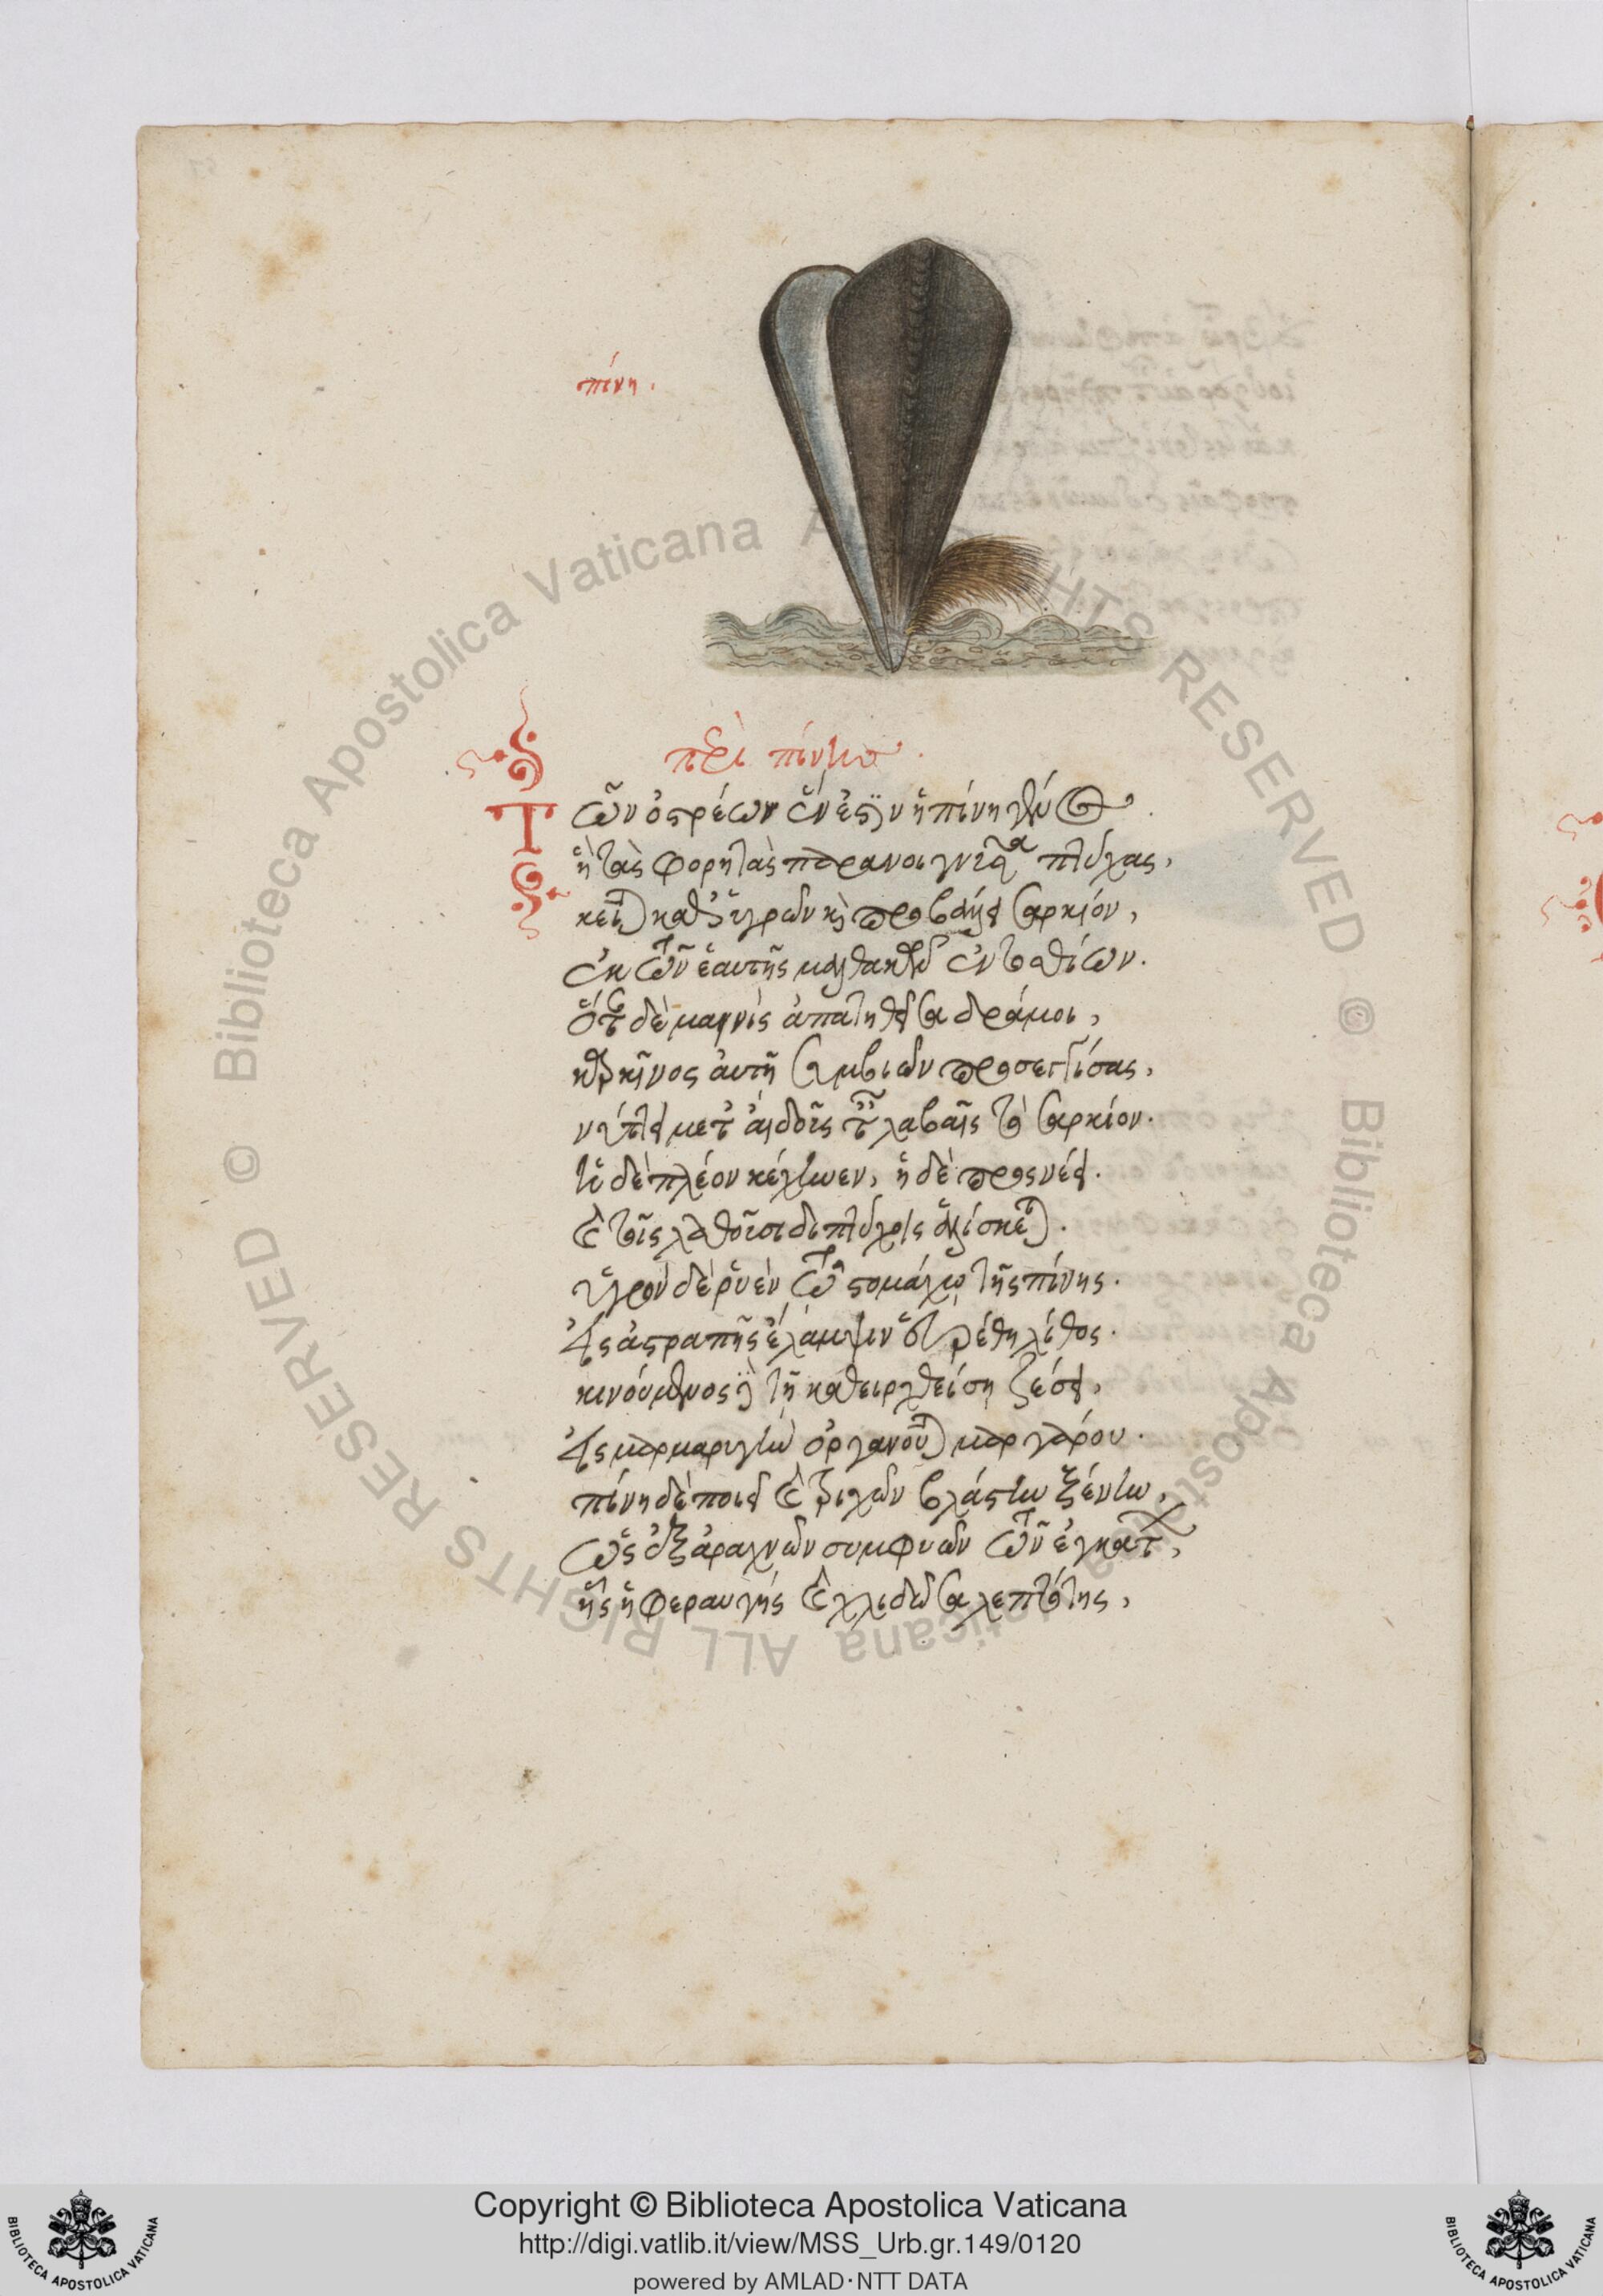 πίνη.
περὶ πίνης.
Τῶν ὀστρέων ἕν ἐστιν ἡ πίνη γένος
ἣ τὰς φορητὰς παρανοίγνυσα πτύχας,
κεῖται καθ' ὑγρῶν καὶ προβάλλει σαρκίον,
ἐκ τῶν ἑαυτῆς μαλθακῶν ἐντοσθίων.
ὅταν δὲ μαινὶς ἀπατηθεῖσα δράμοι,
καρκῖνος αὐτῇ συμβιῶν προσεγγίσας,
νύττει μεταιδοῖς
λαβαῖς τὸ σαρκίον.
τῇ δὲ πλέον κέχηνεν, ἡ δὲ προσνέει.
καὶ τοῖς λαθοῦσι διπτύχοις ἁλίσκεται.
ὑγρὸν δὲ ῥυὲν τῷ στομάχῳ τῆς πίνης.
ἐξ ἀστραπῆς ἔλαμψεν
λίθος.
κινούμενος γὰρ τῇ καθειρχθείσῃ ζέσει,
ἐξ μαρμαρυγῶν ὀργανοῦται μαργάρου.
πίνη δὲ ποιεῖ καὶ τριχῶν βλάστην ξένην,
ὡς ἐξ ἀραχνῶν συμφυῶν τῶν ἐγκάτων,
ἧς ἡ φεραυγὴς καὶ χλιδῶσα λεπτότης,
Copyright © Biblioteca Apostolica Vaticana
http://digi.vatlib.it/view/MSS_Urb.gr.149/0120
powered by AMLAD·NTT DATA
BIBLIOTECA APOSTOLICA VATICANA
BIBLIOTECA APOSTOLICA VATICANA
© Biblioteca Apostolica Vaticana ALL RIGHTS RESERVED
© Biblioteca Apostolica Vaticana ALL RIGHTS RESERVED